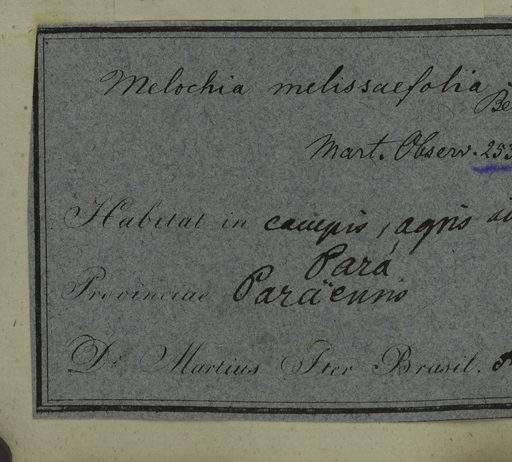 Melochia melissaefolia Be
Mart. Observ. 253
Habitat in campis, agris
Pará
Provinciae Paraënsis
Dr. Martius Iter Brasil.